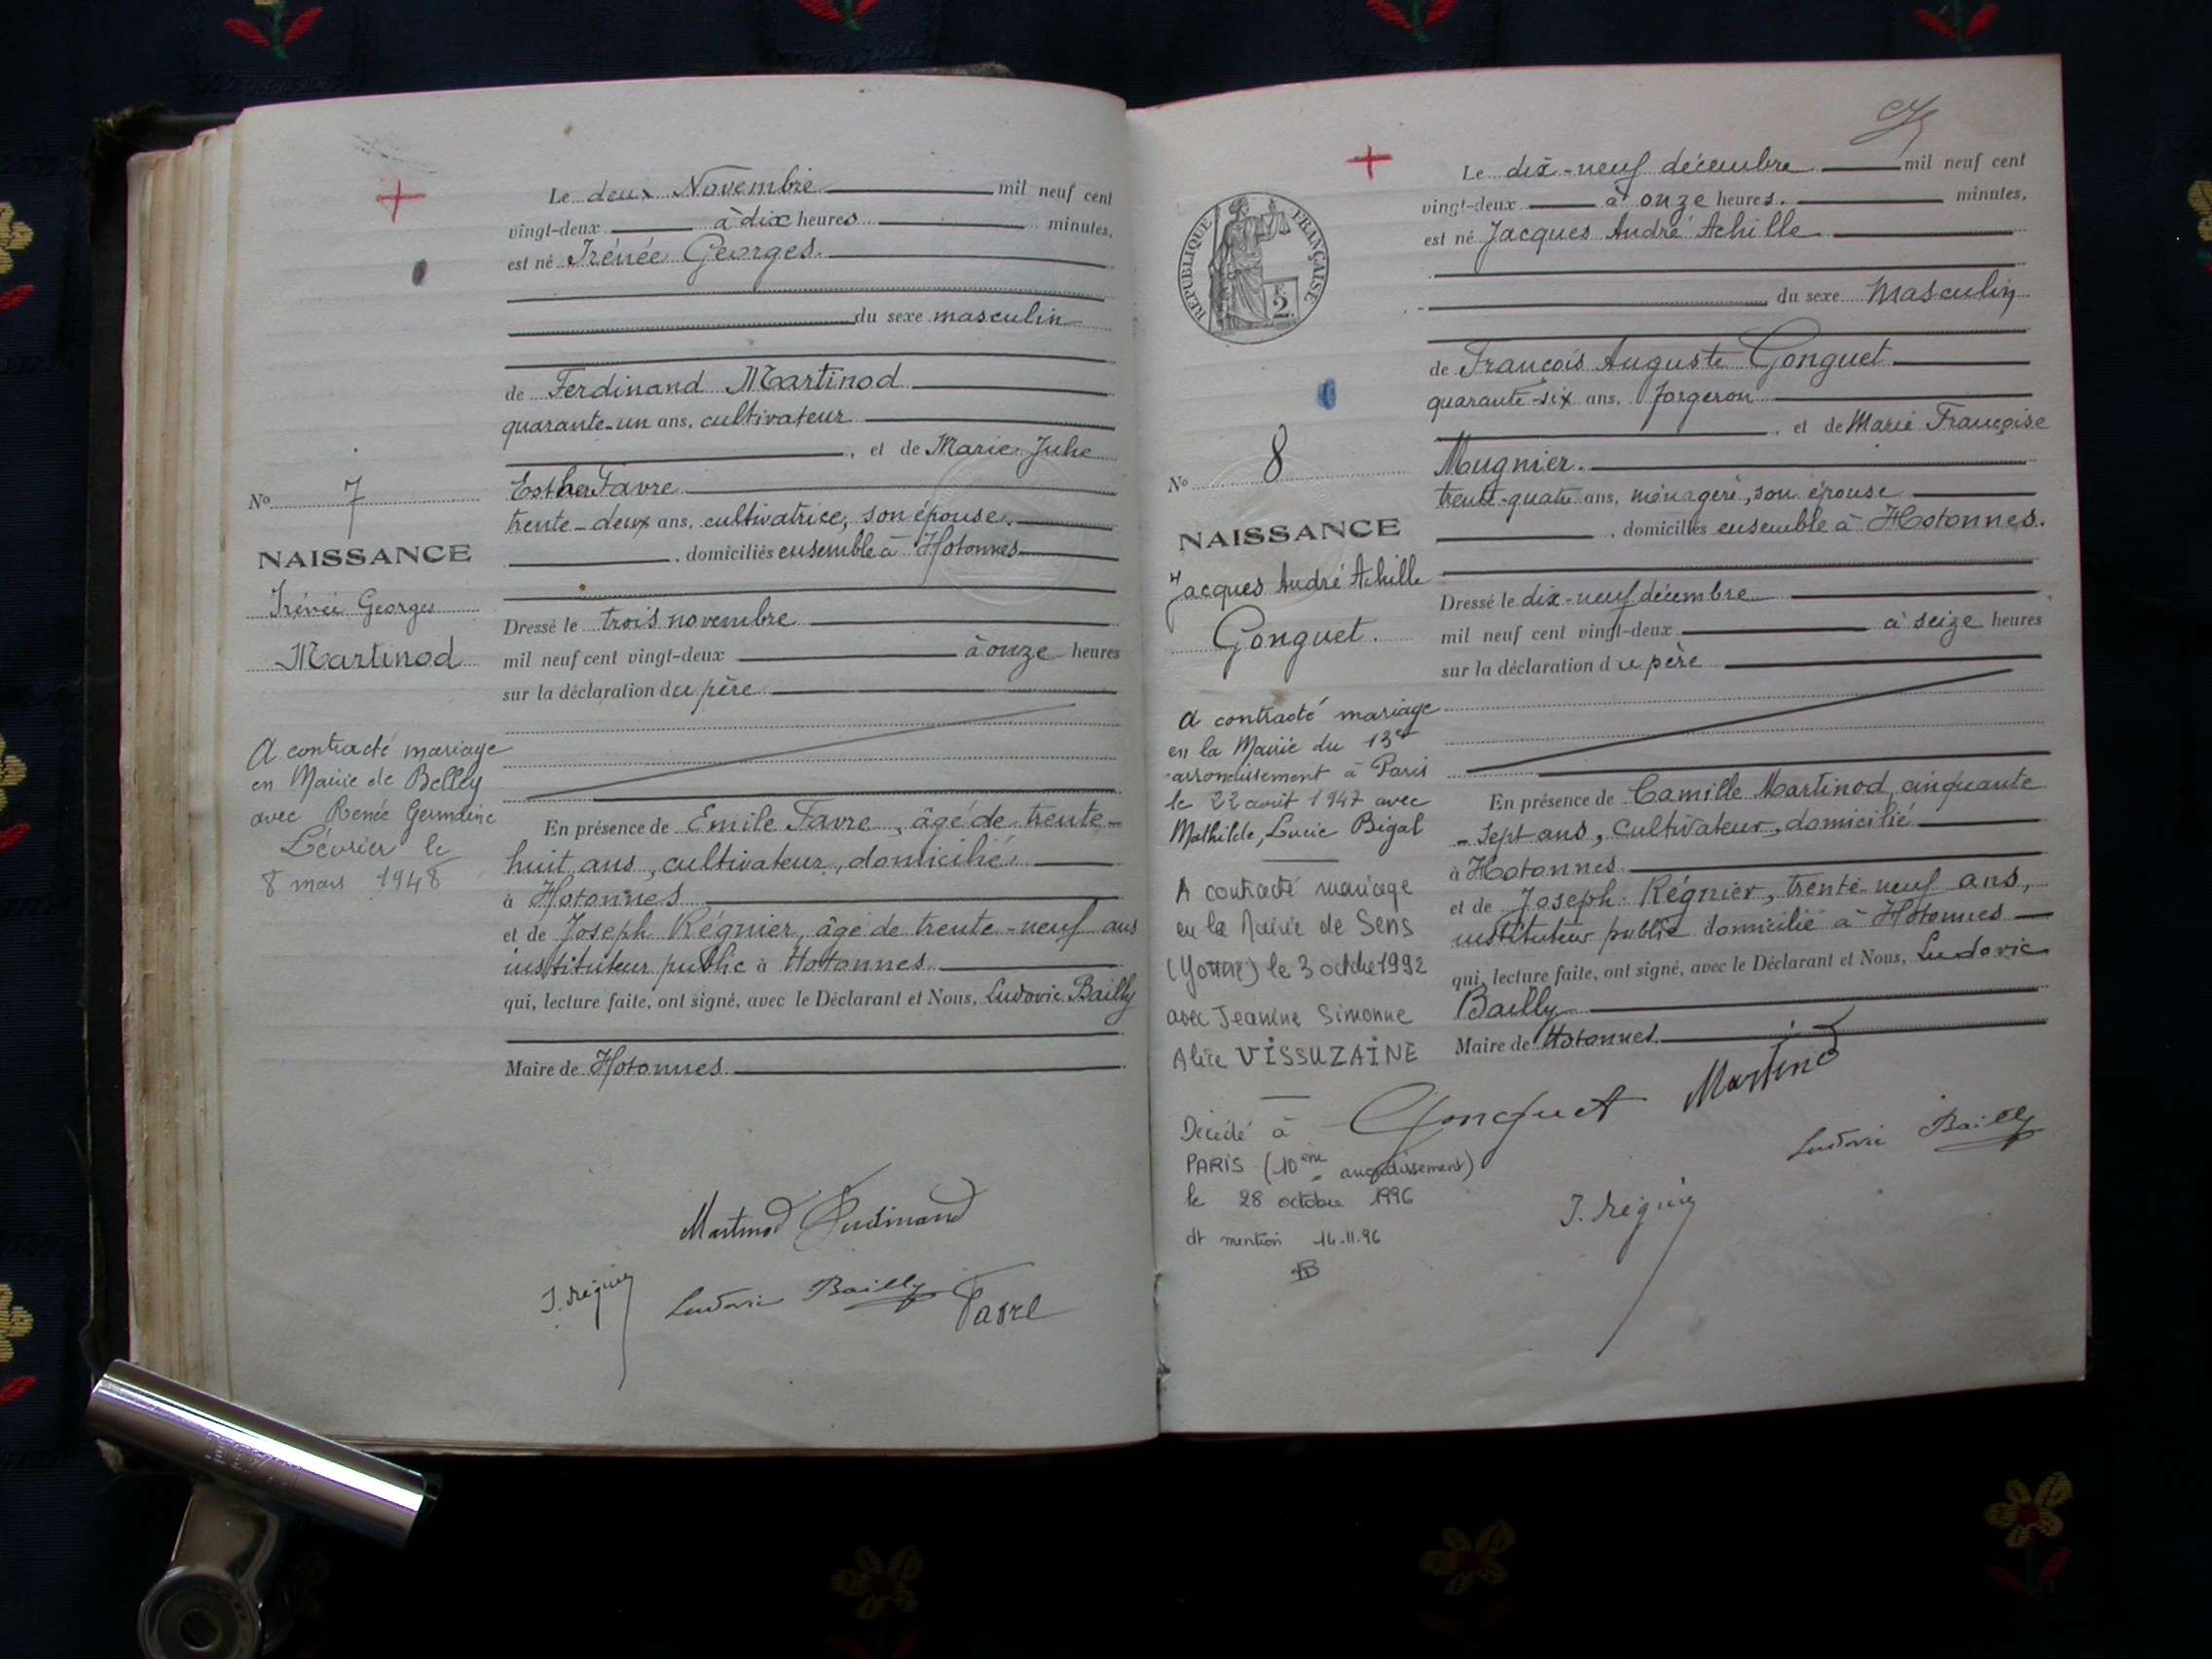 Le deux Novembre mil neuf cent
vingt-deux à dix heures minutes,
est né Irénée Georges
du sexe masculin
de Ferdinand Martinod
quarante-un ans, cultivateur
, et de Marie Julie
Esther Favre
trente-deux ans, cultivatrice, son épouse.
, domiciliés ensemble à Hotonnes
Dressé le trois novembre
mil neuf cent vingt-deux à onze heures
sur la déclaration du père
En présence de Emile Favre, âgé de trente-
huit ans, cultivateur, domicilié
à Hotonnes
et de Joseph Régnier, âgé de trente-neuf ans
instituteur public à Hotonnes
qui, lecture faite, ont signé, avec le Déclarant et Nous, Ludovic Bailly
Maire de Hotonnes
Martinod Ferdinand
J. Régnier Ludovic Bailly Favre
No 7
NAISSANCE
Irénée Georges
Martinod
A contracté mariage
en Mairie de Belley
avec Renée Germaine
Lévrier le
8 mars 1948
Le dix-neuf décembre mil neuf cent
vingt-deux à onze heures. minutes,
est né Jacques André Achille
du sexe Masculin
de François Auguste Gonguet
quarante-six ans, forgeron
, et de Marie Françoise
Mugnier.
trente-quatre ans, ménagère, son épouse
, domiciliés ensemble à Hotonnes.
Dressé le dix-neuf décembre
mil neuf cent vingt-deux à seize heures
sur la déclaration du père
En présence de Camille Martinod, cinquante
-sept ans, cultivateur, domicilié
à Hotonnes
et de Joseph Régnier, trente-neuf ans,
instituteur public domicilié à Hotonnes
qui, lecture faite, ont signé, avec le Déclarant et Nous, Ludovic
Bailly
Maire de Hotonnes
Gonguet Martinod
Ludovic Bailly
J. Régnier
RÉPUBLIQUE FRANÇAISE
2F.
No 8
NAISSANCE
Jacques André Achille
Gonguet.
A contracté mariage
en la Mairie du 13e
arrondissement à Paris
le 22 avril 1947 avec
Mathilde, Lucie Bigal
A contracté mariage
en la Mairie de Sens
(Yonne) le 3 octobre 1992
avec Jeanine Simonne
Alice VISSUZAINE
Décédé à
PARIS (10ème arrondissement)
le 28 octobre 1996
dt mention 14.11.96